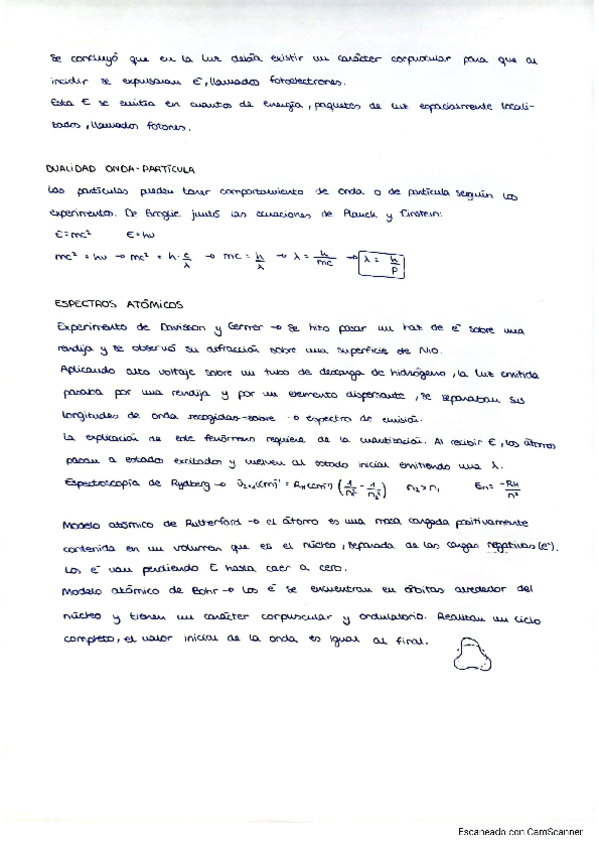 Se concluyó que en la luz debía existir un carácter corpuscular para que al
incidir se expulsaran e⁻, llamados fotoelectrones.
Esta E se emitía en cuantos de energía, paquetes de luz espacialmente locali-
zados, llamados fotones.
DUALIDAD ONDA-PARTÍCULA
Las partículas pueden tener comportamiento de onda o de partícula según los
experimentos. De Broglie juntó las ecuaciones de Planck y Einstein:
E=mc² E=hν
mc² = hν → mc² = h·c/λ → mc = h/λ → λ = h/mc → λ = h/p
ESPECTROS ATÓMICOS
Experimento de Davisson y Germer → Se hizo pasar un haz de e⁻ sobre una
rendija y se observó su difracción sobre una superficie de NiO.
Aplicando alto voltaje sobre un tubo de descarga de hidrógeno, la luz emitida
pasaba por una rendija y por un elemento dispersante, se separaban sus
longitudes de onda recogidas sobre → espectro de emisión.
La explicación de este fenómeno requiere de la cuantización. Al recibir E, los átomos
pasan a estados excitados y vuelven al estado inicial emitiendo una λ.
Espectroscopía de Rydberg → (cm⁻¹) = R_H (cm⁻¹) (1/n₁² - 1/n₂²) n₂ > n₁ En = -RH/n²
Modelo atómico de Rutherford → el átomo es una masa cargada positivamente
contenida en un volumen que es el núcleo, separada de las cargas negativas (e⁻).
Los e⁻ van perdiendo E hasta caer a cero.
Modelo atómico de Bohr → los e⁻ se encuentran en órbitas alrededor del
núcleo y tienen un carácter corpuscular y ondulatorio. Realizan un ciclo
completo, el valor inicial de la onda es igual al final.
Escaneado con CamScanner